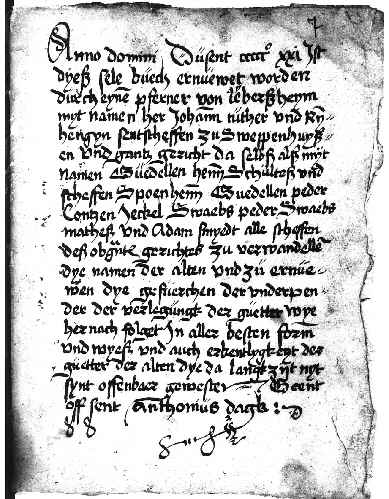 Anno domini Dusent ccccc° xxi Ist
dyeß sele buech ernuewet worden
durch eyne pferner von
myt namen her Johan ruther und
hengyn sentscheffen zu
en Und gantz gericht da selbst alß myt
namen Guedellen hein Schulteß und
scheffen Spoenhein Guedellen peder
Contzen Jeckel Swaebs peder Swaebs
matheß und Adam smydt alle scheffen
deß gerichtes zu verwandelle
dye namen der alten und zu ernue-
wen dye gefuerchen der underpen
der der verlegungt der guetter wye
her nach folget In aller besten form
und wyeß und auch der
guetter der alten dye da langk zyt nyt
synt offenbaer gewesten Geent
uff sent Anthonius dagk :